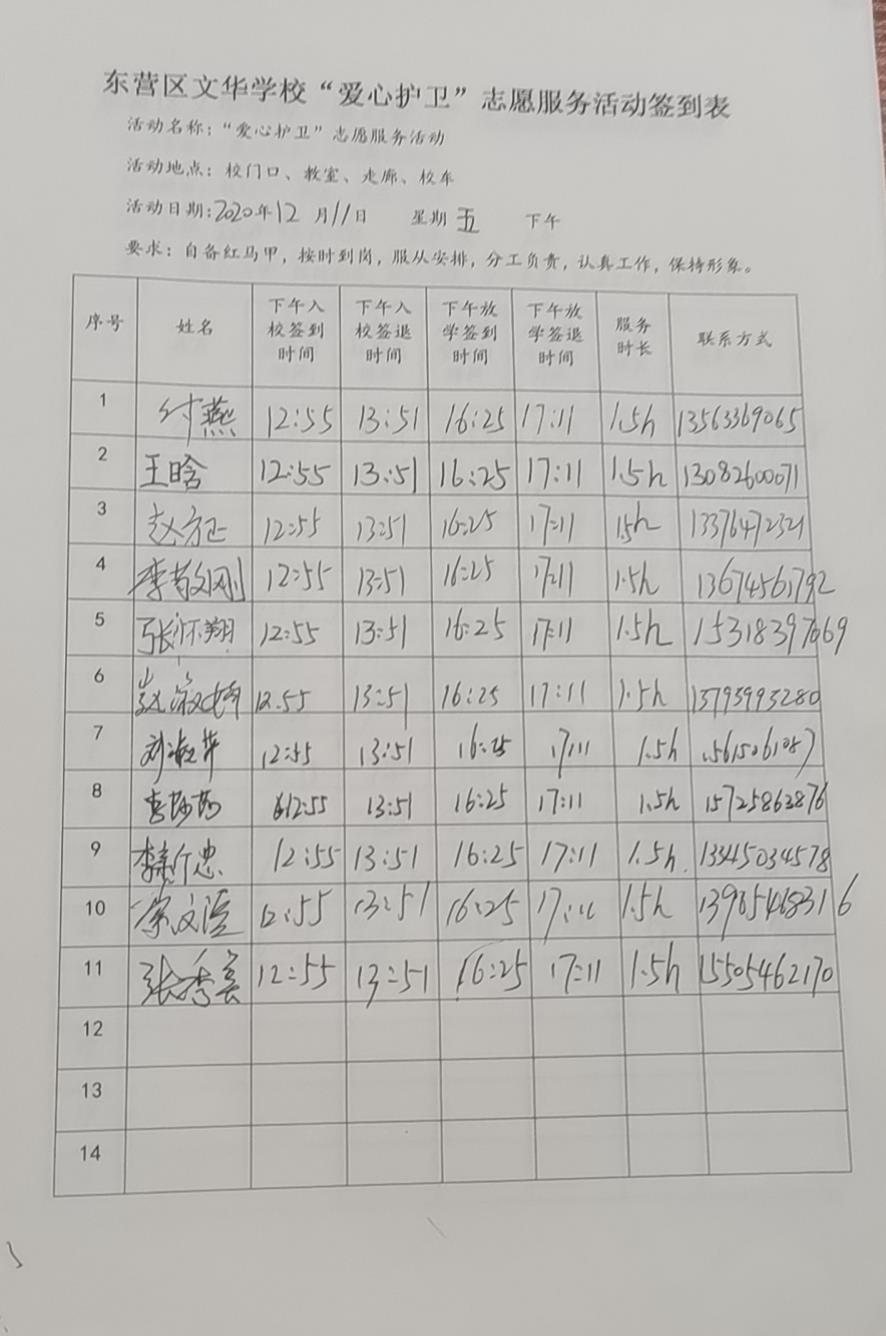 东营区文华学校“爱心护卫”志愿服务活动签到表
活动名称：“爱心护卫”志愿服务活动
活动地点：校门口、教室、走廊、校车
活动日期：2020年12月11日 星期五 下午
要求：自备红马甲，按时到岗，服从安排，分工负责，认真工作，保持形象。
序号 姓名 下午入校签到时间 下午入校签退时间 下午放学签到时间 下午放学签退时间 服务时长 联系方式
1 付燕 12:55 13:51 16:25 17:11 1.5h 13563369065
2 王晗 12:55 13:51 16:25 17:11 1.5h 13082600071
3 赵方正 12:55 13:51 16:25 17:11 1.5h 13376472321
4 12:55 13:51 16:25 17:11 1.5h 13674561792
5 张怀翔 12:55 13:51 16:25 17:11 1.5h 15318397669
6 12.55 13:51 16:25 17:11 1.5h 13793993280
7 12:55 13:51 16:25 17:11 1.5h
8 12:55 13:51 16:25 17:11 1.5h 15725863876
9 12:55 13:51 16:25 17:11 1.5h 13345034578
10 12:55 13:51 16:25 17:11 1.5h
11 张秀美 12:55 13:51 16:25 17:11 1.5h 15505462170
12
13
14